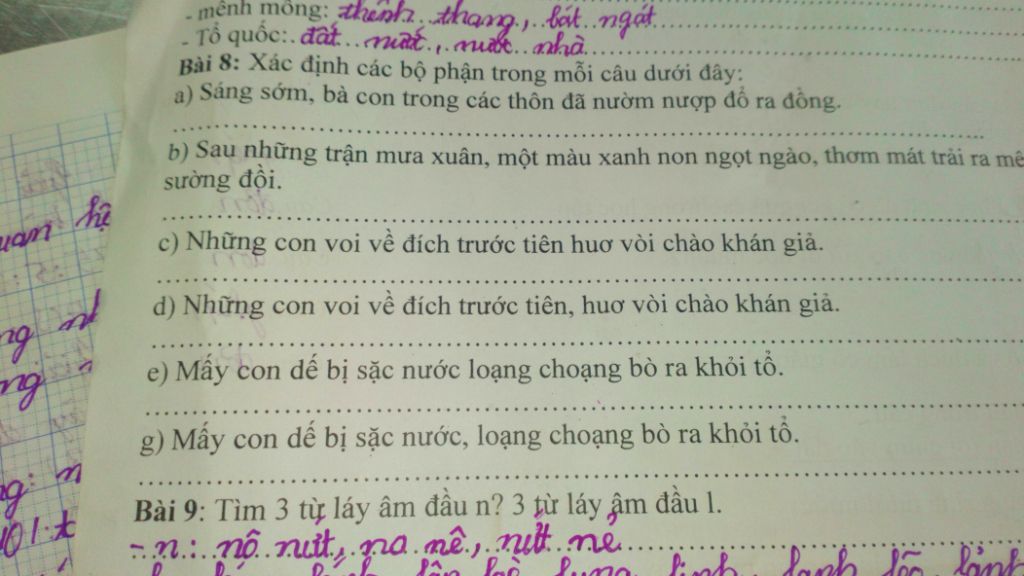 - mênh mông: thênh thang, bát ngát
- Tổ quốc: đất nước, nước nhà
Bài 8: Xác định các bộ phận trong mỗi câu dưới đây:
a) Sáng sớm, bà con trong các thôn đã nườm nượp đổ ra đồng.
b) Sau những trận mưa xuân, một màu xanh non ngọt ngào, thơm mát trải ra mê
sường đồi.
uan hệ
c) Những con voi về đích trước tiên huơ vòi chào khán giả.
d) Những con voi về đích trước tiên, huơ vòi chào khán giả.
ng
e) Mấy con dế bị sặc nước loạng choạng bò ra khỏi tổ.
ng
g) Mấy con dế bị sặc nước, loạng choạng bò ra khỏi tổ.
Bài 9: Tìm 3 từ láy âm đầu n? 3 từ láy âm đầu l.
- n: nô nức, no nê, nứt nẻ